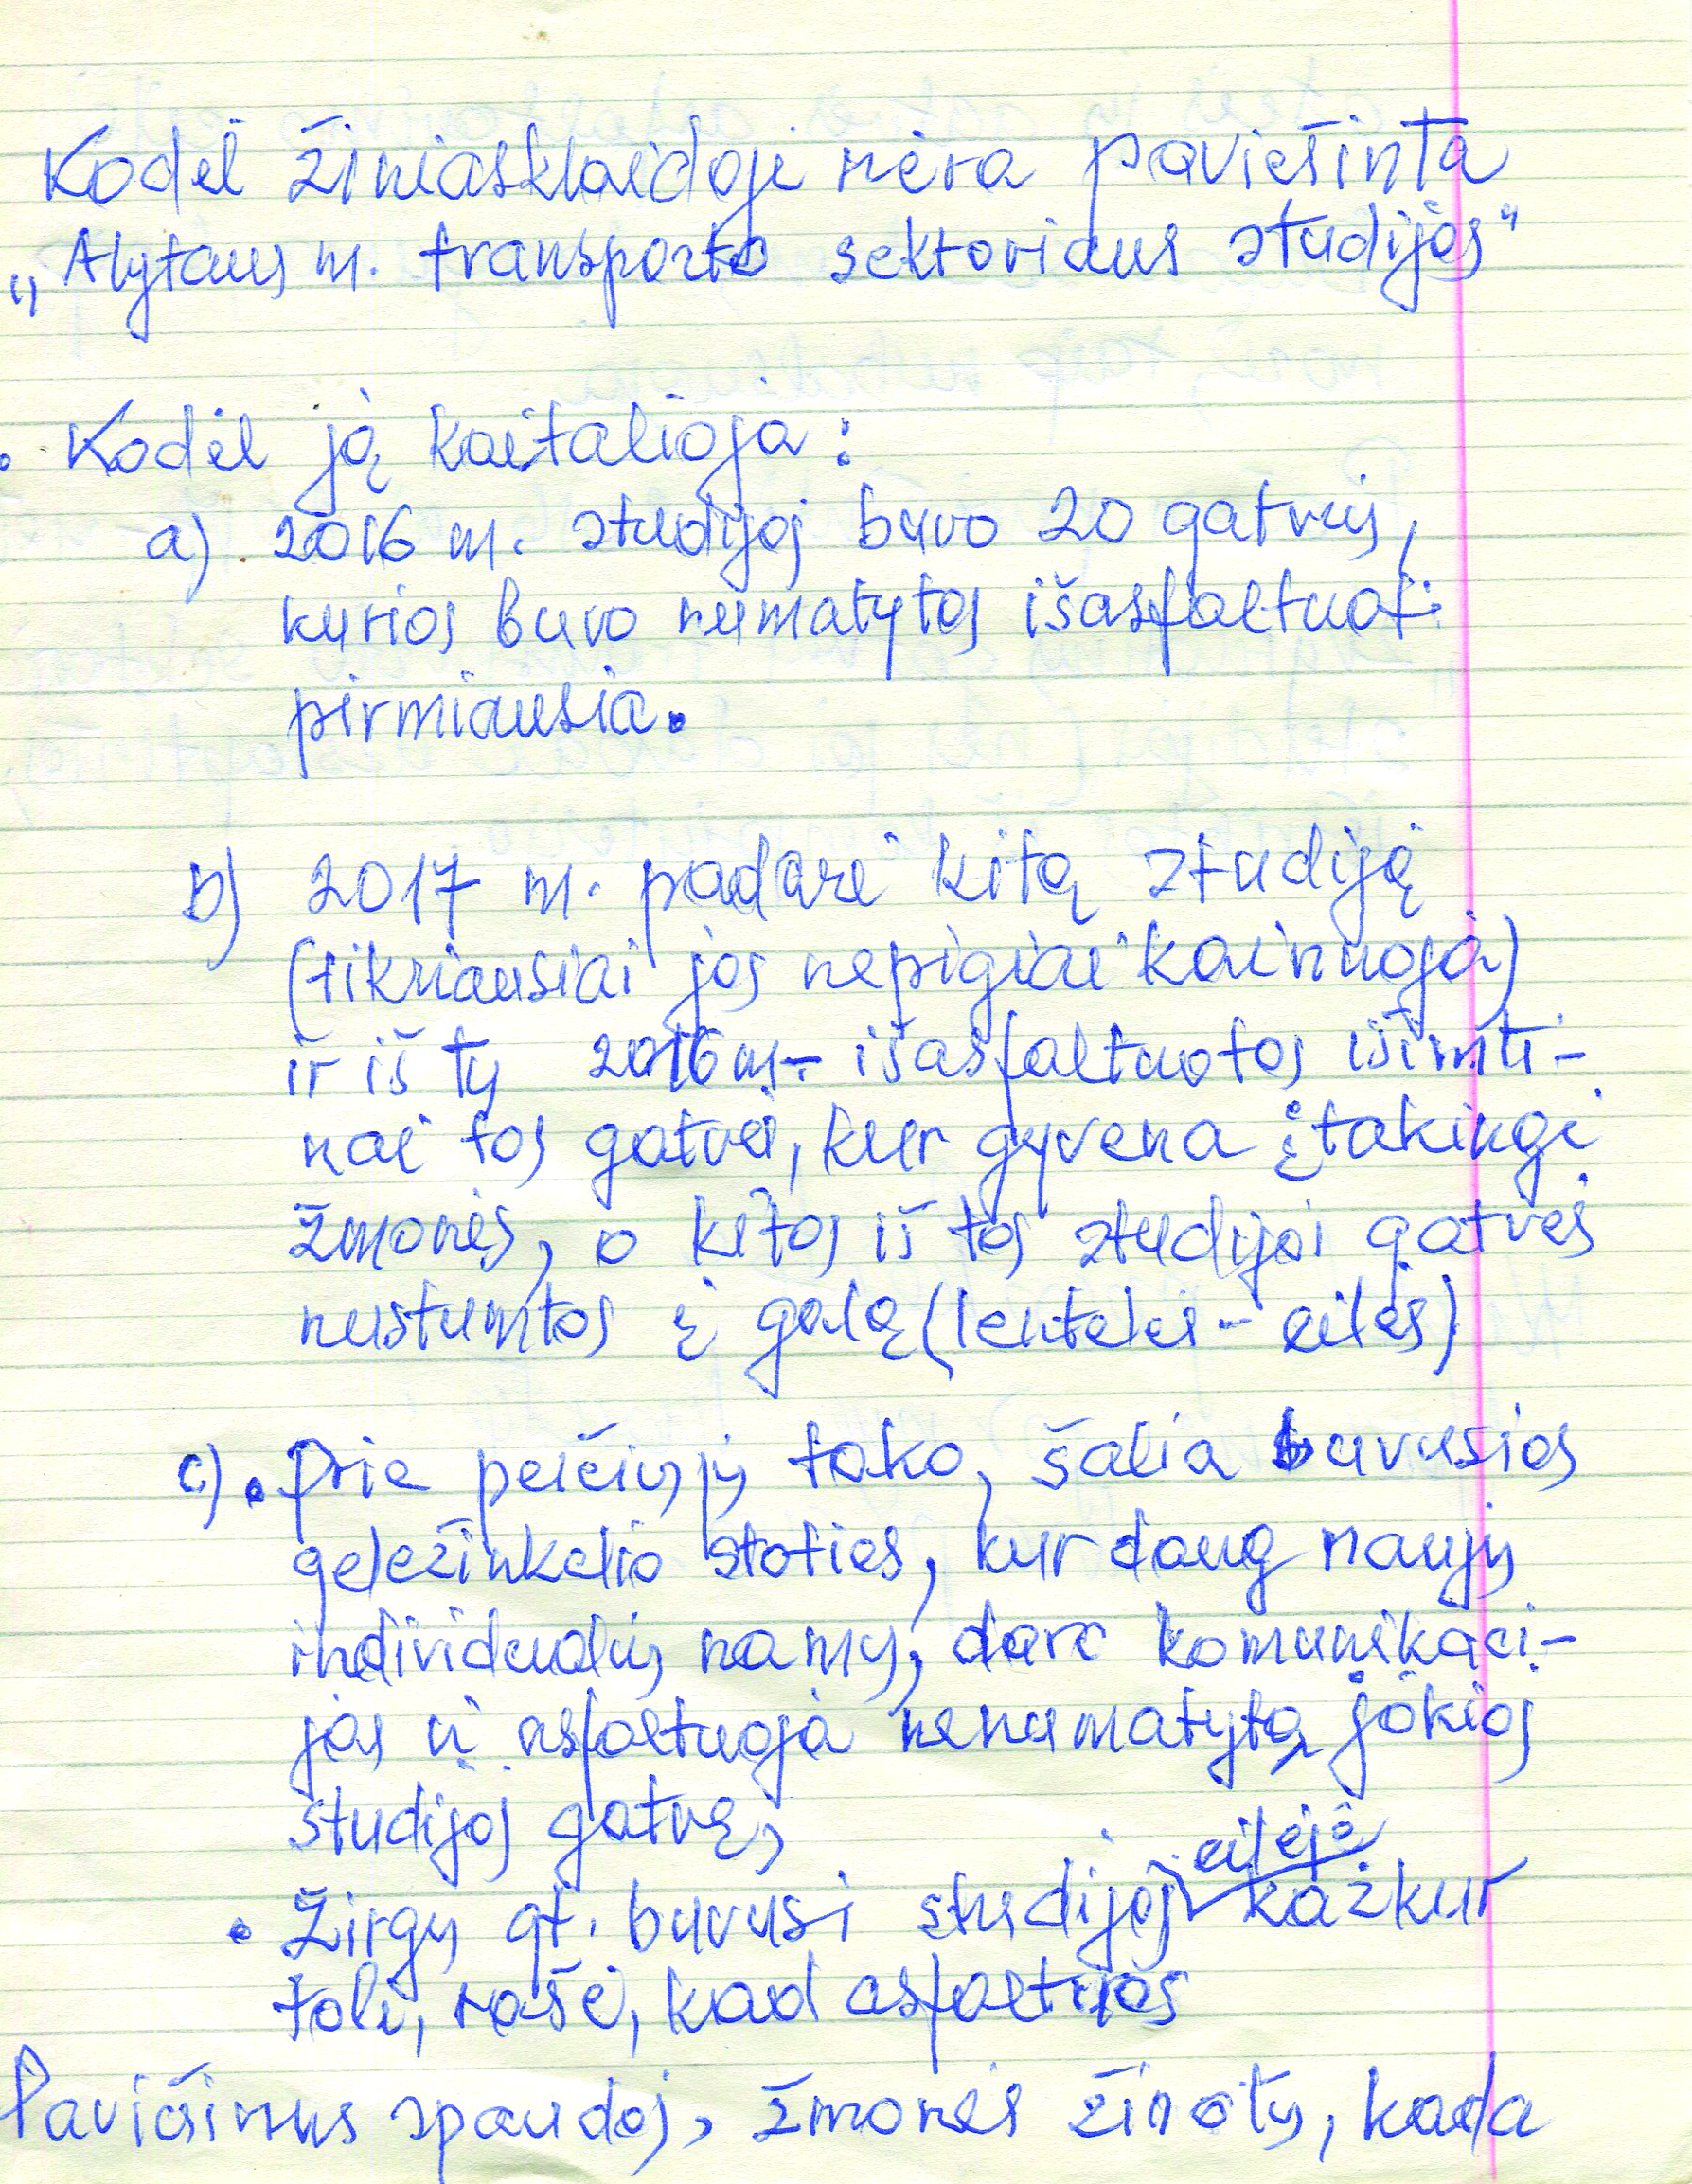 Kodėl žiniasklaidoje nėra paviešinta
„Alytaus m. transporto sektoriaus studijos"
• Kodėl ją kaitalioja:
a) 2016 m. studijoj buvo 20 gatvių,
kurios buvo numatytos išasfaltuoti
pirmiausia.
b) 2017 m. padarė kitą studiją
(tikriausiai jos nepigiai kainuoja)
ir iš tų 2016 m. išasfaltuotos išimti-
nai tos gatvės, kur gyvena įtakingi
žmonės, o kitos iš tos studijos gatvės
nustumtos į galą (lentelės - eilės)
c) • Prie pėsčiųjų tako, šalia buvusios
geležinkelio stoties, kur daug naujų
individualių namų, daro komunikaci-
jas ir asfaltuoja nenumatytą jokioj
studijoj gatvę,
• Žirgų gt. buvusi studijoj eilėje kažkur
toli, rašė, kad asfaltuos
Paviešinus spaudoj, žmonės žinotų, kada